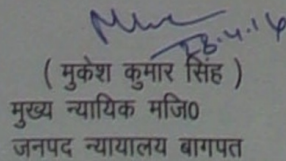 28.4.14
( मुकेश कुमार सिंह )
मुख्य न्यायिक मजि0
जनपद न्यायालय बागपत